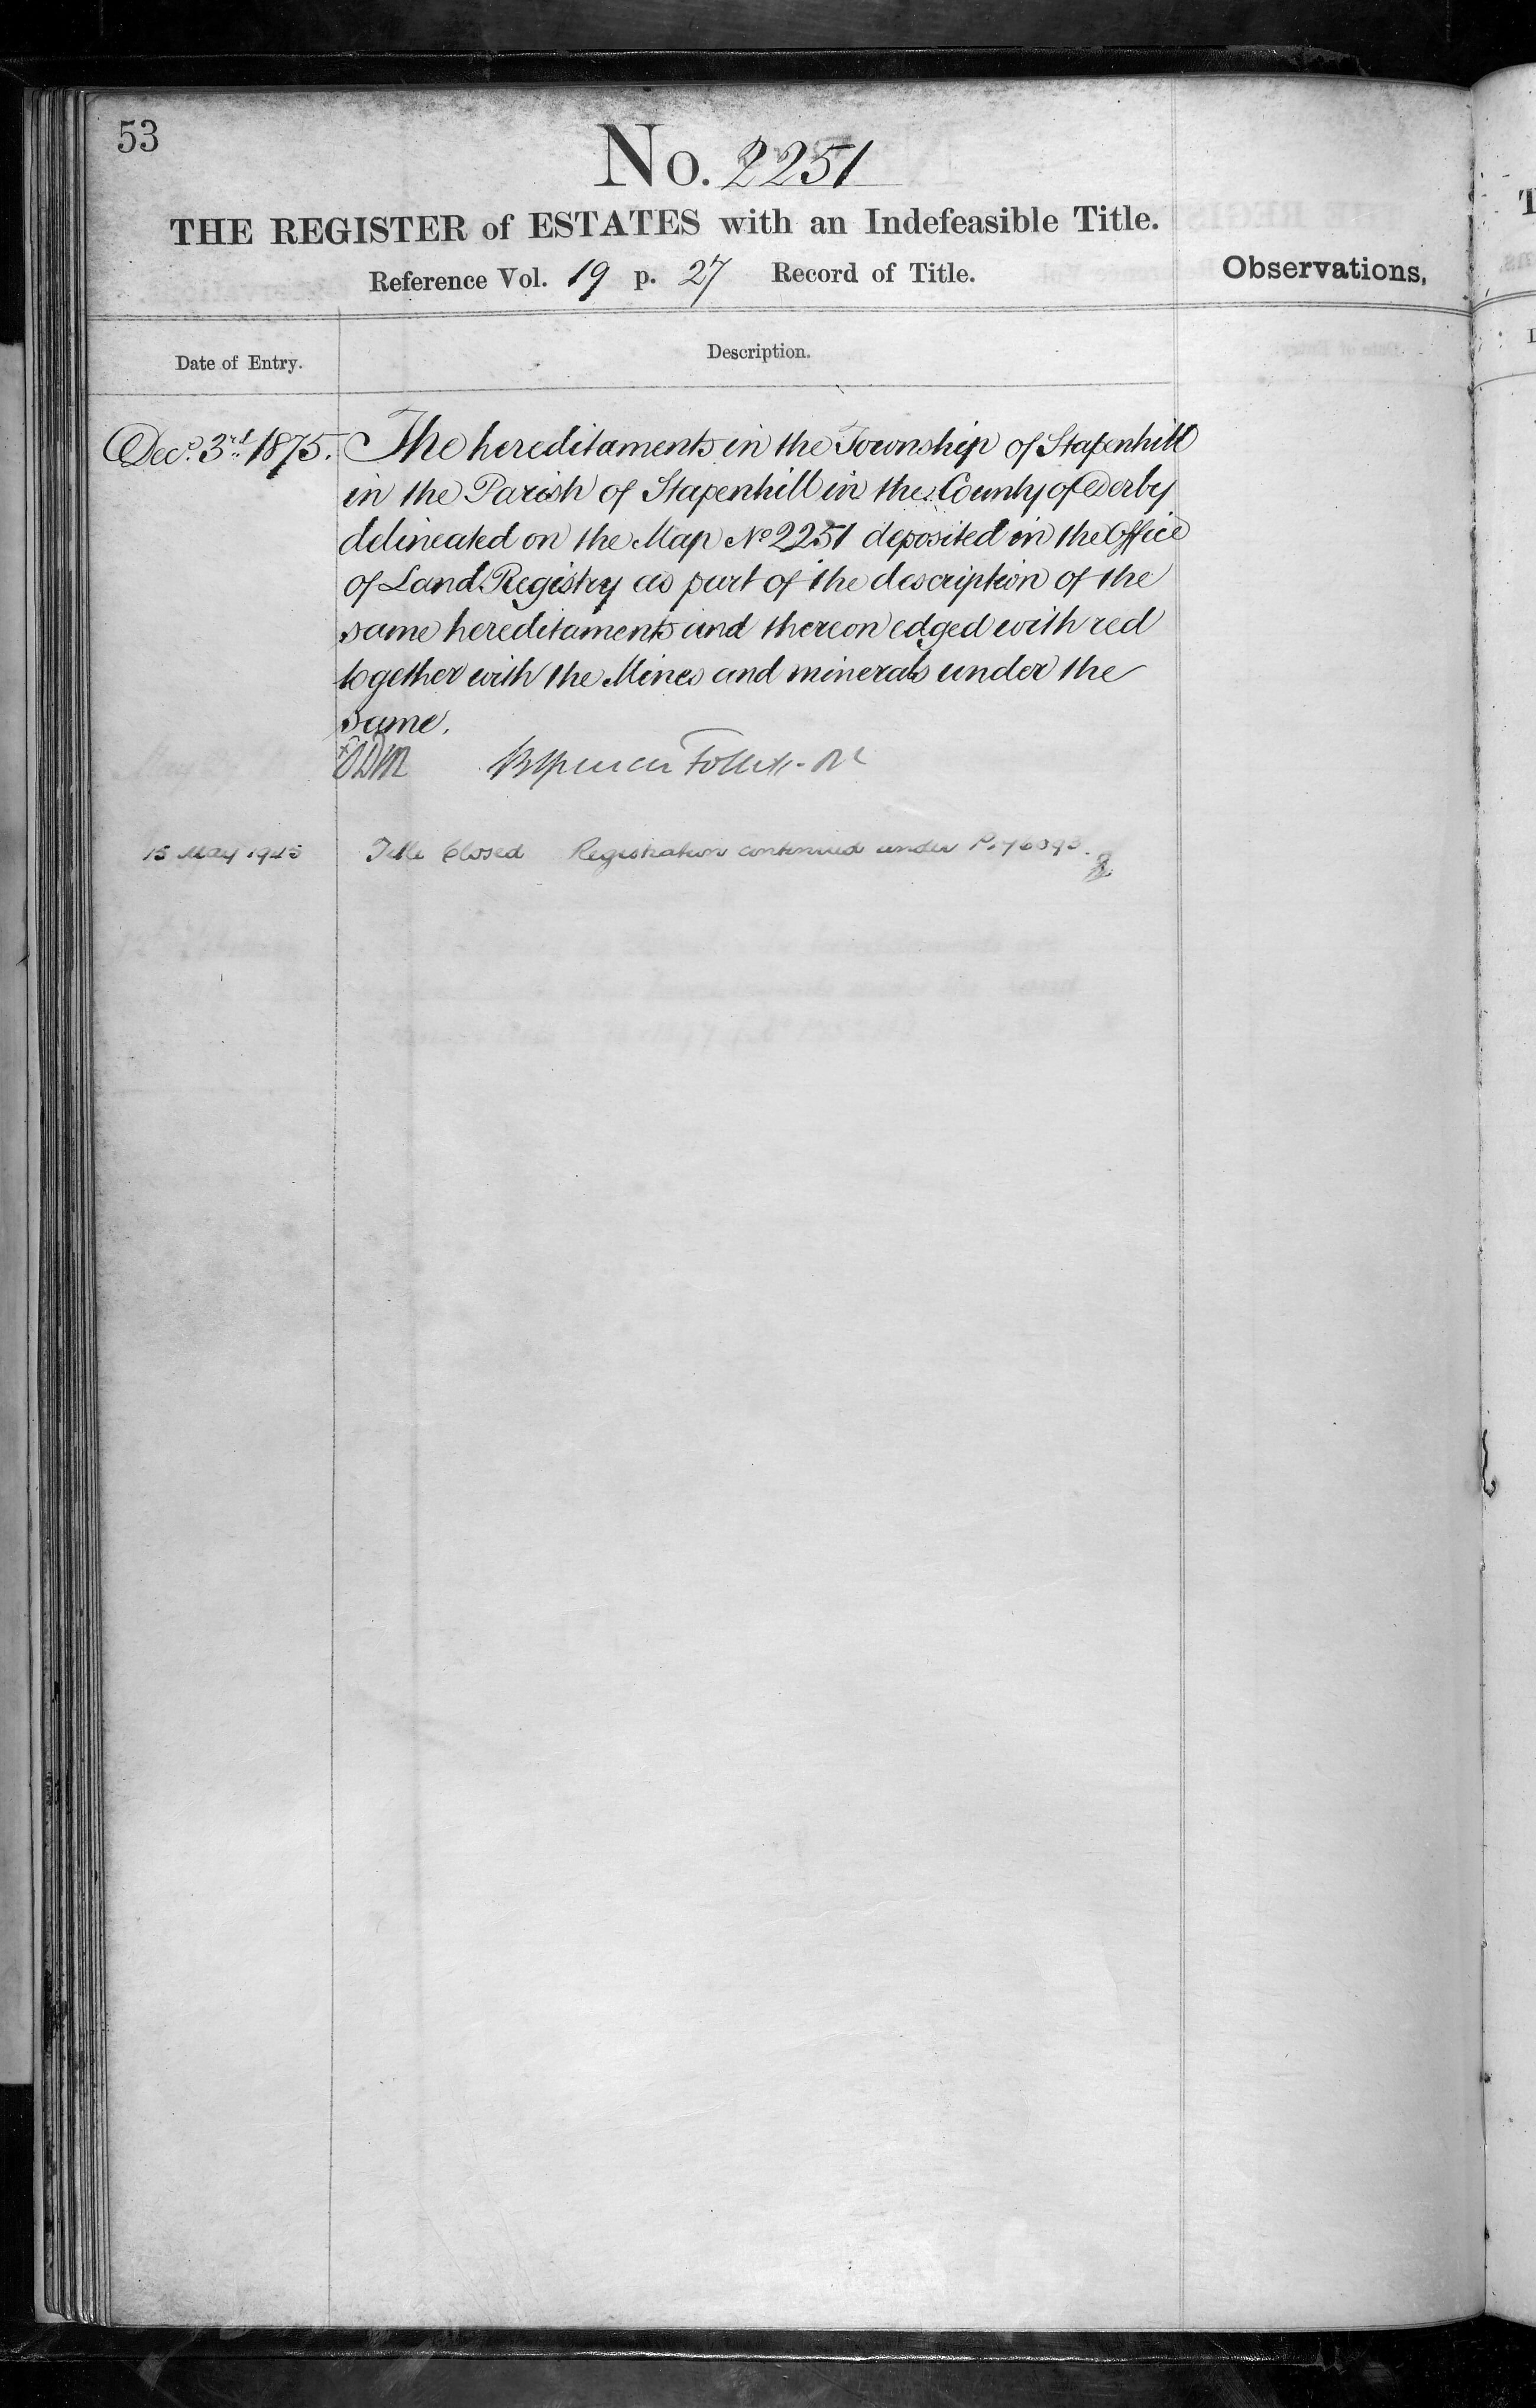 53
No. 2251
THE REGISTER of ESTATES with an Indefeasible Title.
Reference Vol. 19 p. 27 Record of Title.
Observations,
Date of Entry.
Description.
Dec.r 3rd 1875. The hereditaments in the Township of Stapenhill
in the Parish of Stapenhill in the County of Derby
delineated on the Map No 2251 deposited in the Office
of Land Registry as part of the description of the
same hereditaments and thereon edged with red
together with the Mines and minerals under the
same.
15 May 1925 Title Closed Registration continued under